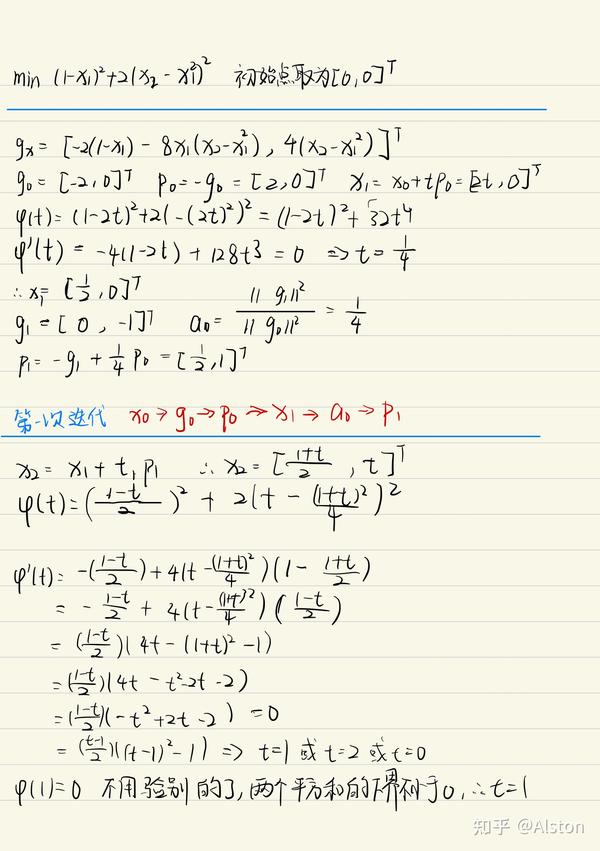 min (1-x₁)²+2(x₂-x₁²)² 初始点取为[0,0]ᵀ
gₓ= [-2(1-x₁) - 8x₁(x₂-x₁²), 4(x₂-x₁²)]ᵀ
g₀=[-2,0]ᵀ p₀=-g₀=[2,0]ᵀ x₁=x₀+tp₀=[2t,0]ᵀ
φ(t)=(1-2t)²+2(-(2t)²)²=(1-2t)²+32t⁴
φ'(t) = -4(1-2t)+128t³ =0 ⇒ t=1/4
∴x₁=[1/2,0]ᵀ
g₁=[0,-1]ᵀ a₀= ||g₁||²/||g₀||² = 1/4
p₁=-g₁+1/4 p₀=[1/2,1]ᵀ
第一次迭代 x₀→g₀→p₀→x₁→a₀→p₁
x₂=x₁+t₁p₁ ∴x₂=[(1+t)/2, t]ᵀ
φ(t)=((1-t)/2)² + 2(t-(1+t)²/4)²
φ'(t)= -((1-t)/2)+4(t-(1+t)²/4)(1-(1+t)/2)
= -(1-t)/2 + 4(t-(1+t)²/4)((1-t)/2)
= ((1-t)/2)(4t-(1+t)²-1)
=((1-t)/2)(4t-t²-2t-2)
=((1-t)/2)(-t²+2t-2) =0
=((t-1)/2)((t-1)²-1) ⇒ t=1或t=2或t=0
φ(1)=0 不用验别的了,两个平方和的下界不小于0,∴t=1
知乎 @Alston